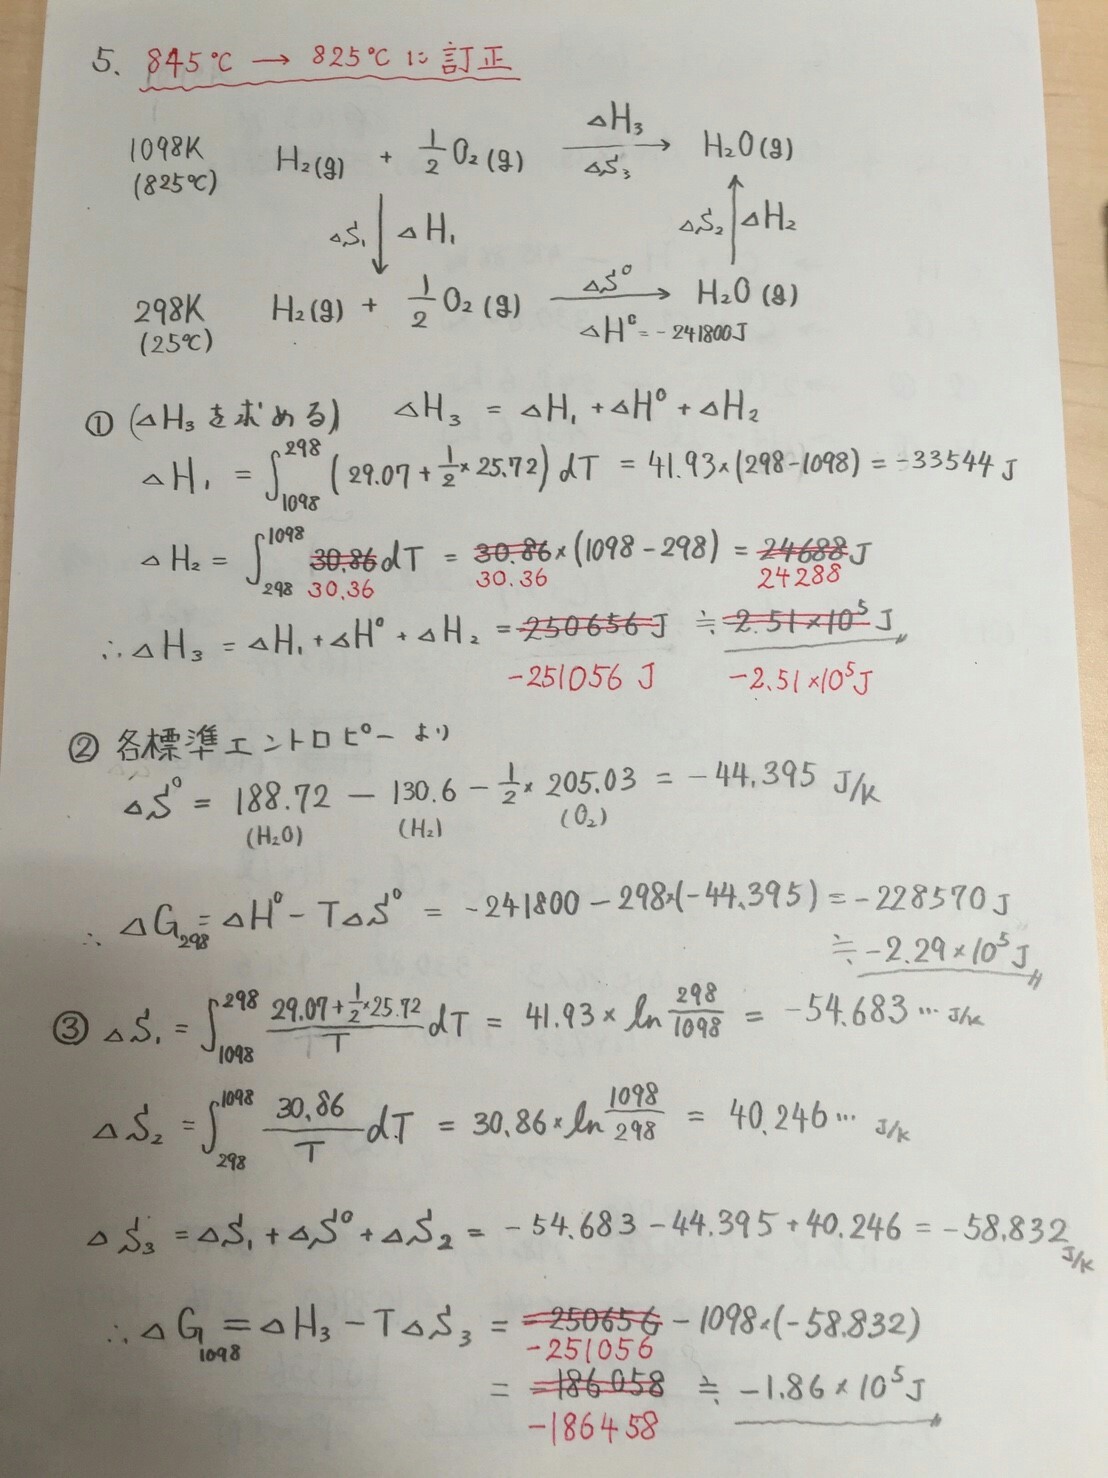 5. 845℃ → 825℃ に訂正
1098K H₂(g) + 1/2 O₂(g) →(ΔH₃ / ΔS₃) H₂O(g)
(825℃)
ΔS₁ ↓ ΔH₁ ΔS₂ ↑ ΔH₂
298K H₂(g) + 1/2 O₂(g) →(ΔS⁰ / ΔH⁰ = -241800J) H₂O(g)
(25℃)
① (ΔH₃を求める) ΔH₃ = ΔH₁ + ΔH⁰ + ΔH₂
ΔH₁ = ∫₁₀₉₈²⁹⁸ (29.07 + 1/2 × 25.72) dT = 41.93×(298-1098) = -33544 J
ΔH₂ = ∫₂₉₈¹⁰⁹⁸ 30.86 dT = 30.86×(1098-298) = 24688 J
30.36 30.36 24288
∴ ΔH₃ = ΔH₁ + ΔH⁰ + ΔH₂ = -250656 J ≒ -2.51×10⁵ J
-251056 J -2.51×10⁵J
② 各標準エントロピーより
ΔS⁰ = 188.72 - 130.6 - 1/2 × 205.03 = -44.395 J/K
(H₂O) (H₂) (O₂)
∴ ΔG₂₉₈ = ΔH⁰ - TΔS⁰ = -241800 - 298×(-44.395) = -228570 J
≒ -2.29×10⁵ J
③ ΔS₁ = ∫₁₀₉₈²⁹⁸ (29.07 + 1/2 × 25.72)/T dT = 41.93 × ln 298/1098 = -54.683… J/K
ΔS₂ = ∫₂₉₈¹⁰⁹⁸ 30.86/T dT = 30.86 × ln 1098/298 = 40.246… J/K
ΔS₃ = ΔS₁ + ΔS⁰ + ΔS₂ = -54.683 - 44.395 + 40.246 = -58.832 J/K
∴ ΔG₁₀₉₈ = ΔH₃ - TΔS₃ = -250656 - 1098×(-58.832)
-251056
= -186058 ≒ -1.86×10⁵ J
-186458